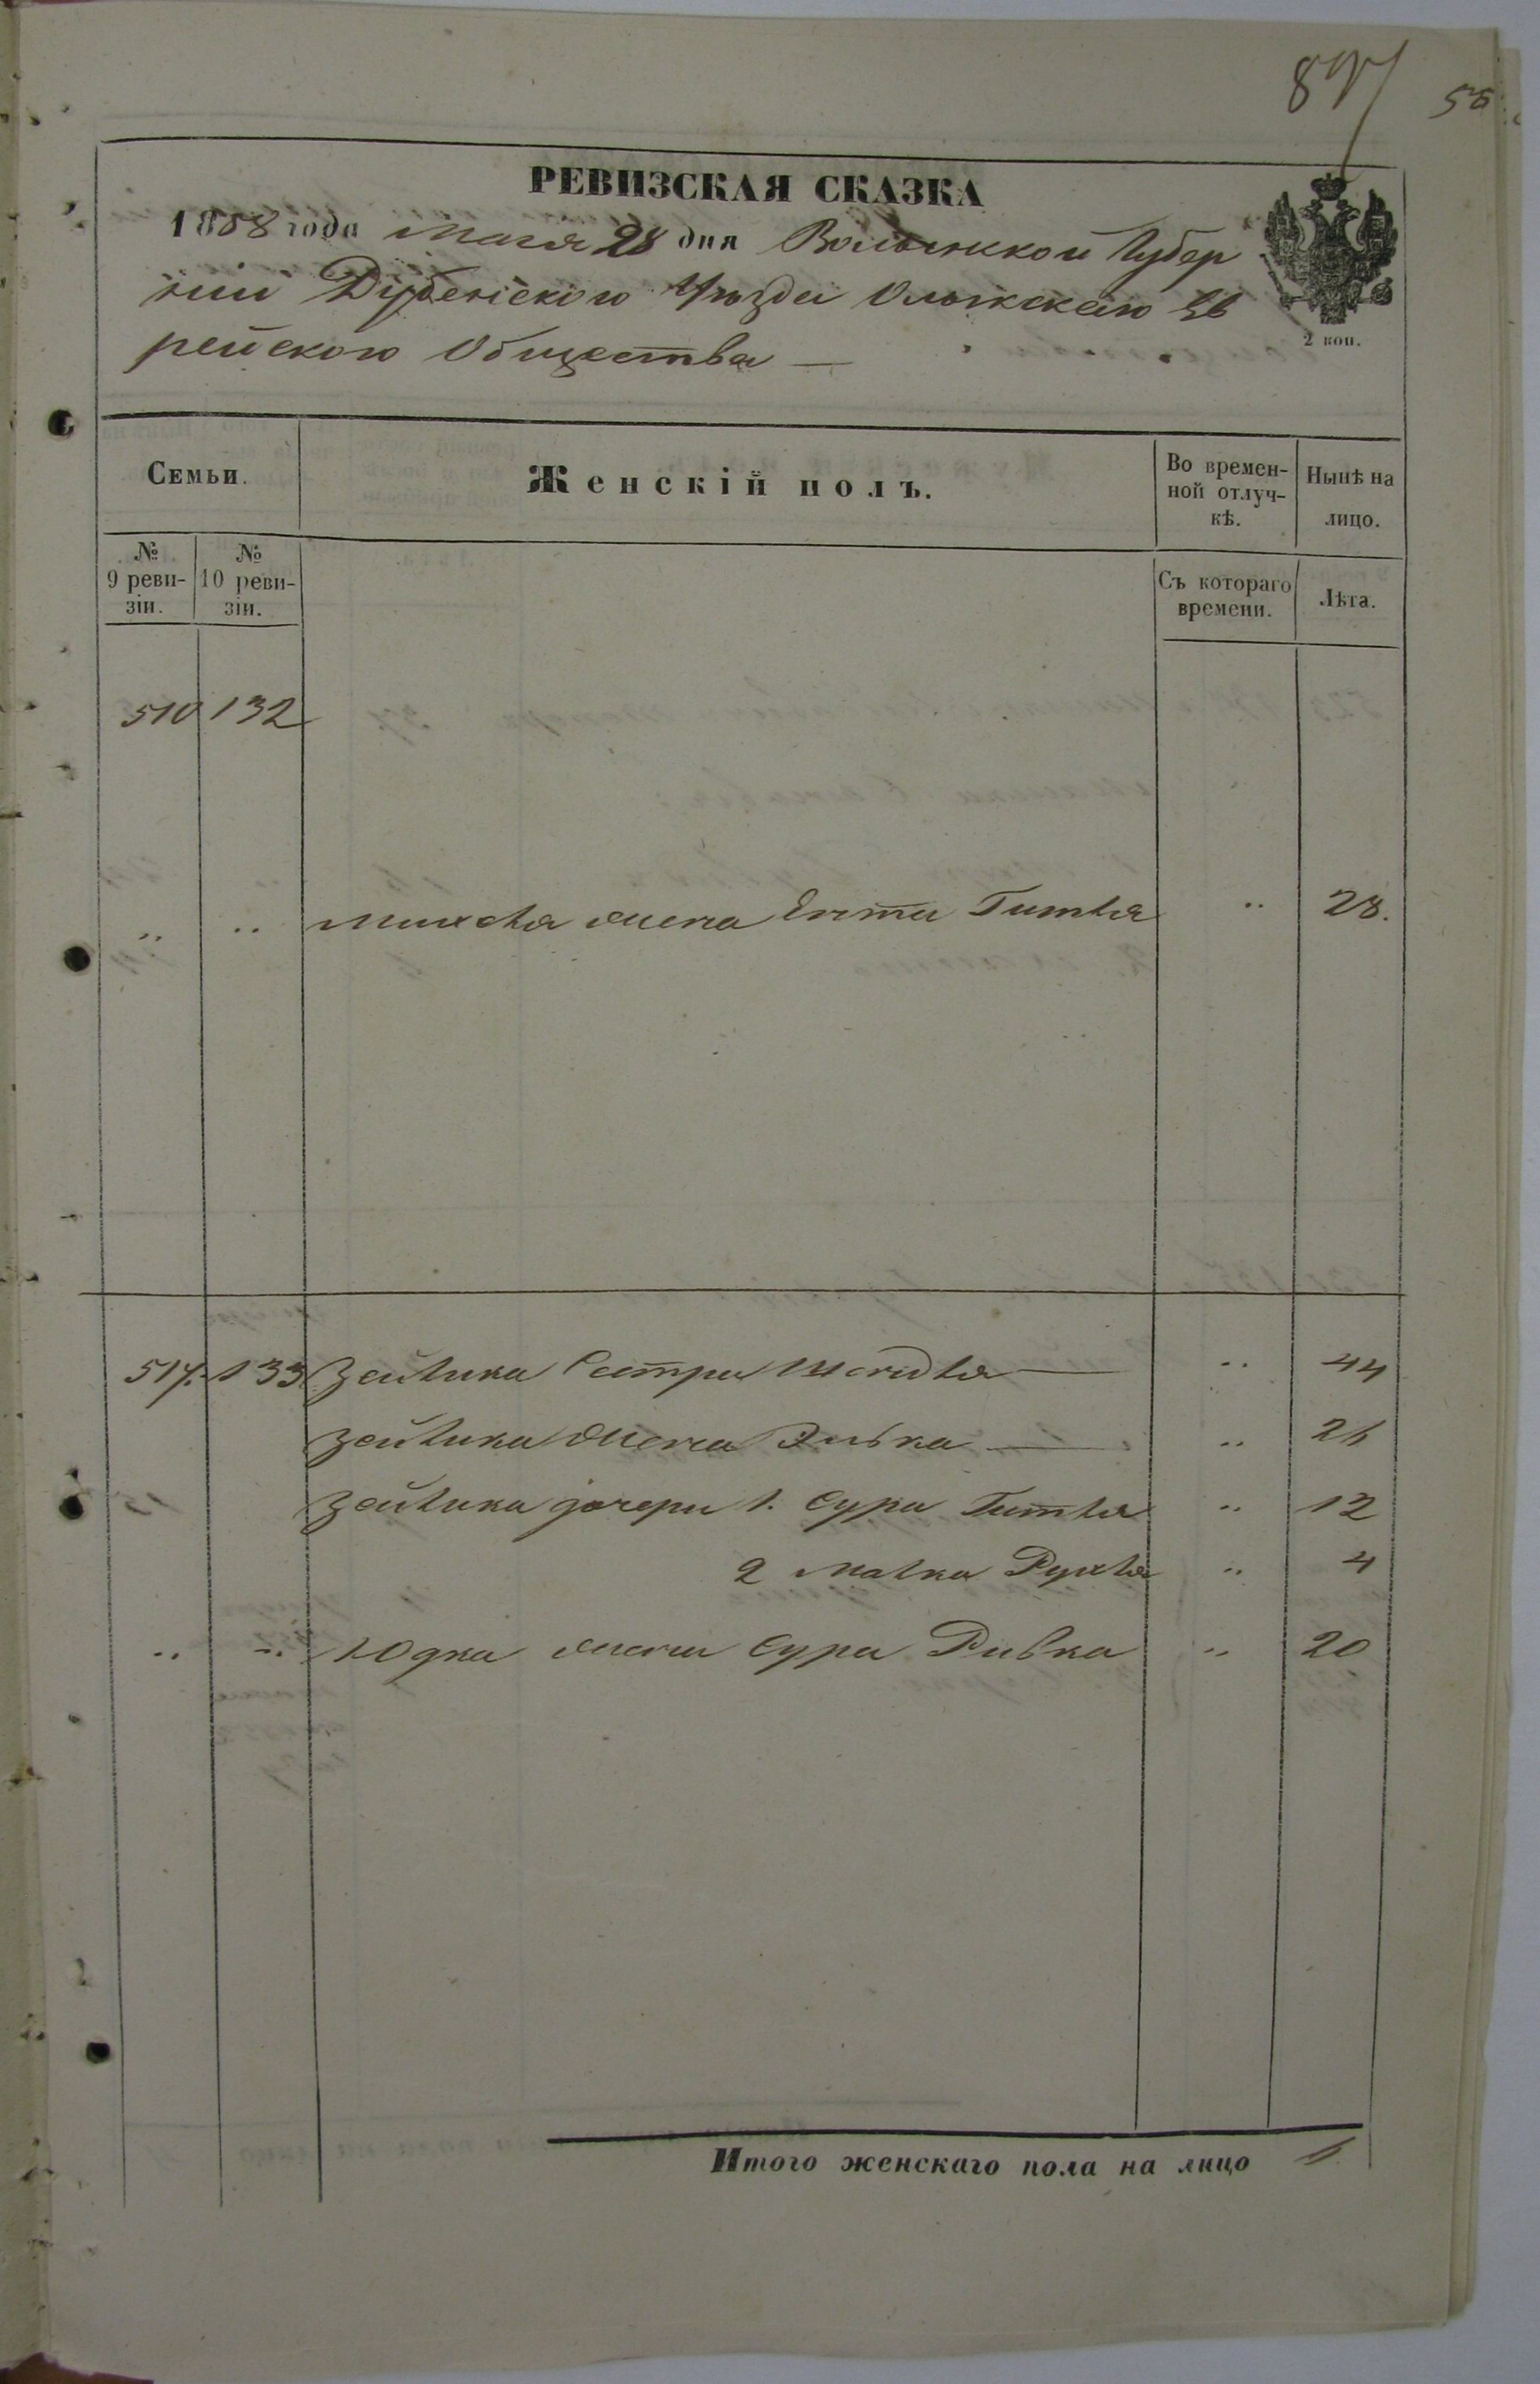 87
55
РЕВИЗСКАЯ СКАЗКА
1858 года Мая 28 дня Волынской Губер
нiи Дубенскаго Уѣзда Олыкскаго Ев
рейского Общества —
2 коп.
Семьи.
Женскiй полъ.
Во времен-
ной отлуч-
кѣ.
Нынѣ на
лицо.
№
9 реви-
зiи.
№
10 реви-
зiи.
Съ котораго
времени.
Лѣта.
510 132
" " жена Ента Гитля " 28.
517. 133 Зейлика Сестра " 44
Зейлика жена Зивка — " 26
Зейлика дочери 1. Сура Гитля " 12
2 Малка Рухля " 4
" " Юдка жена Сура Ривка " 20
Итого женскаго пола на лицо 6